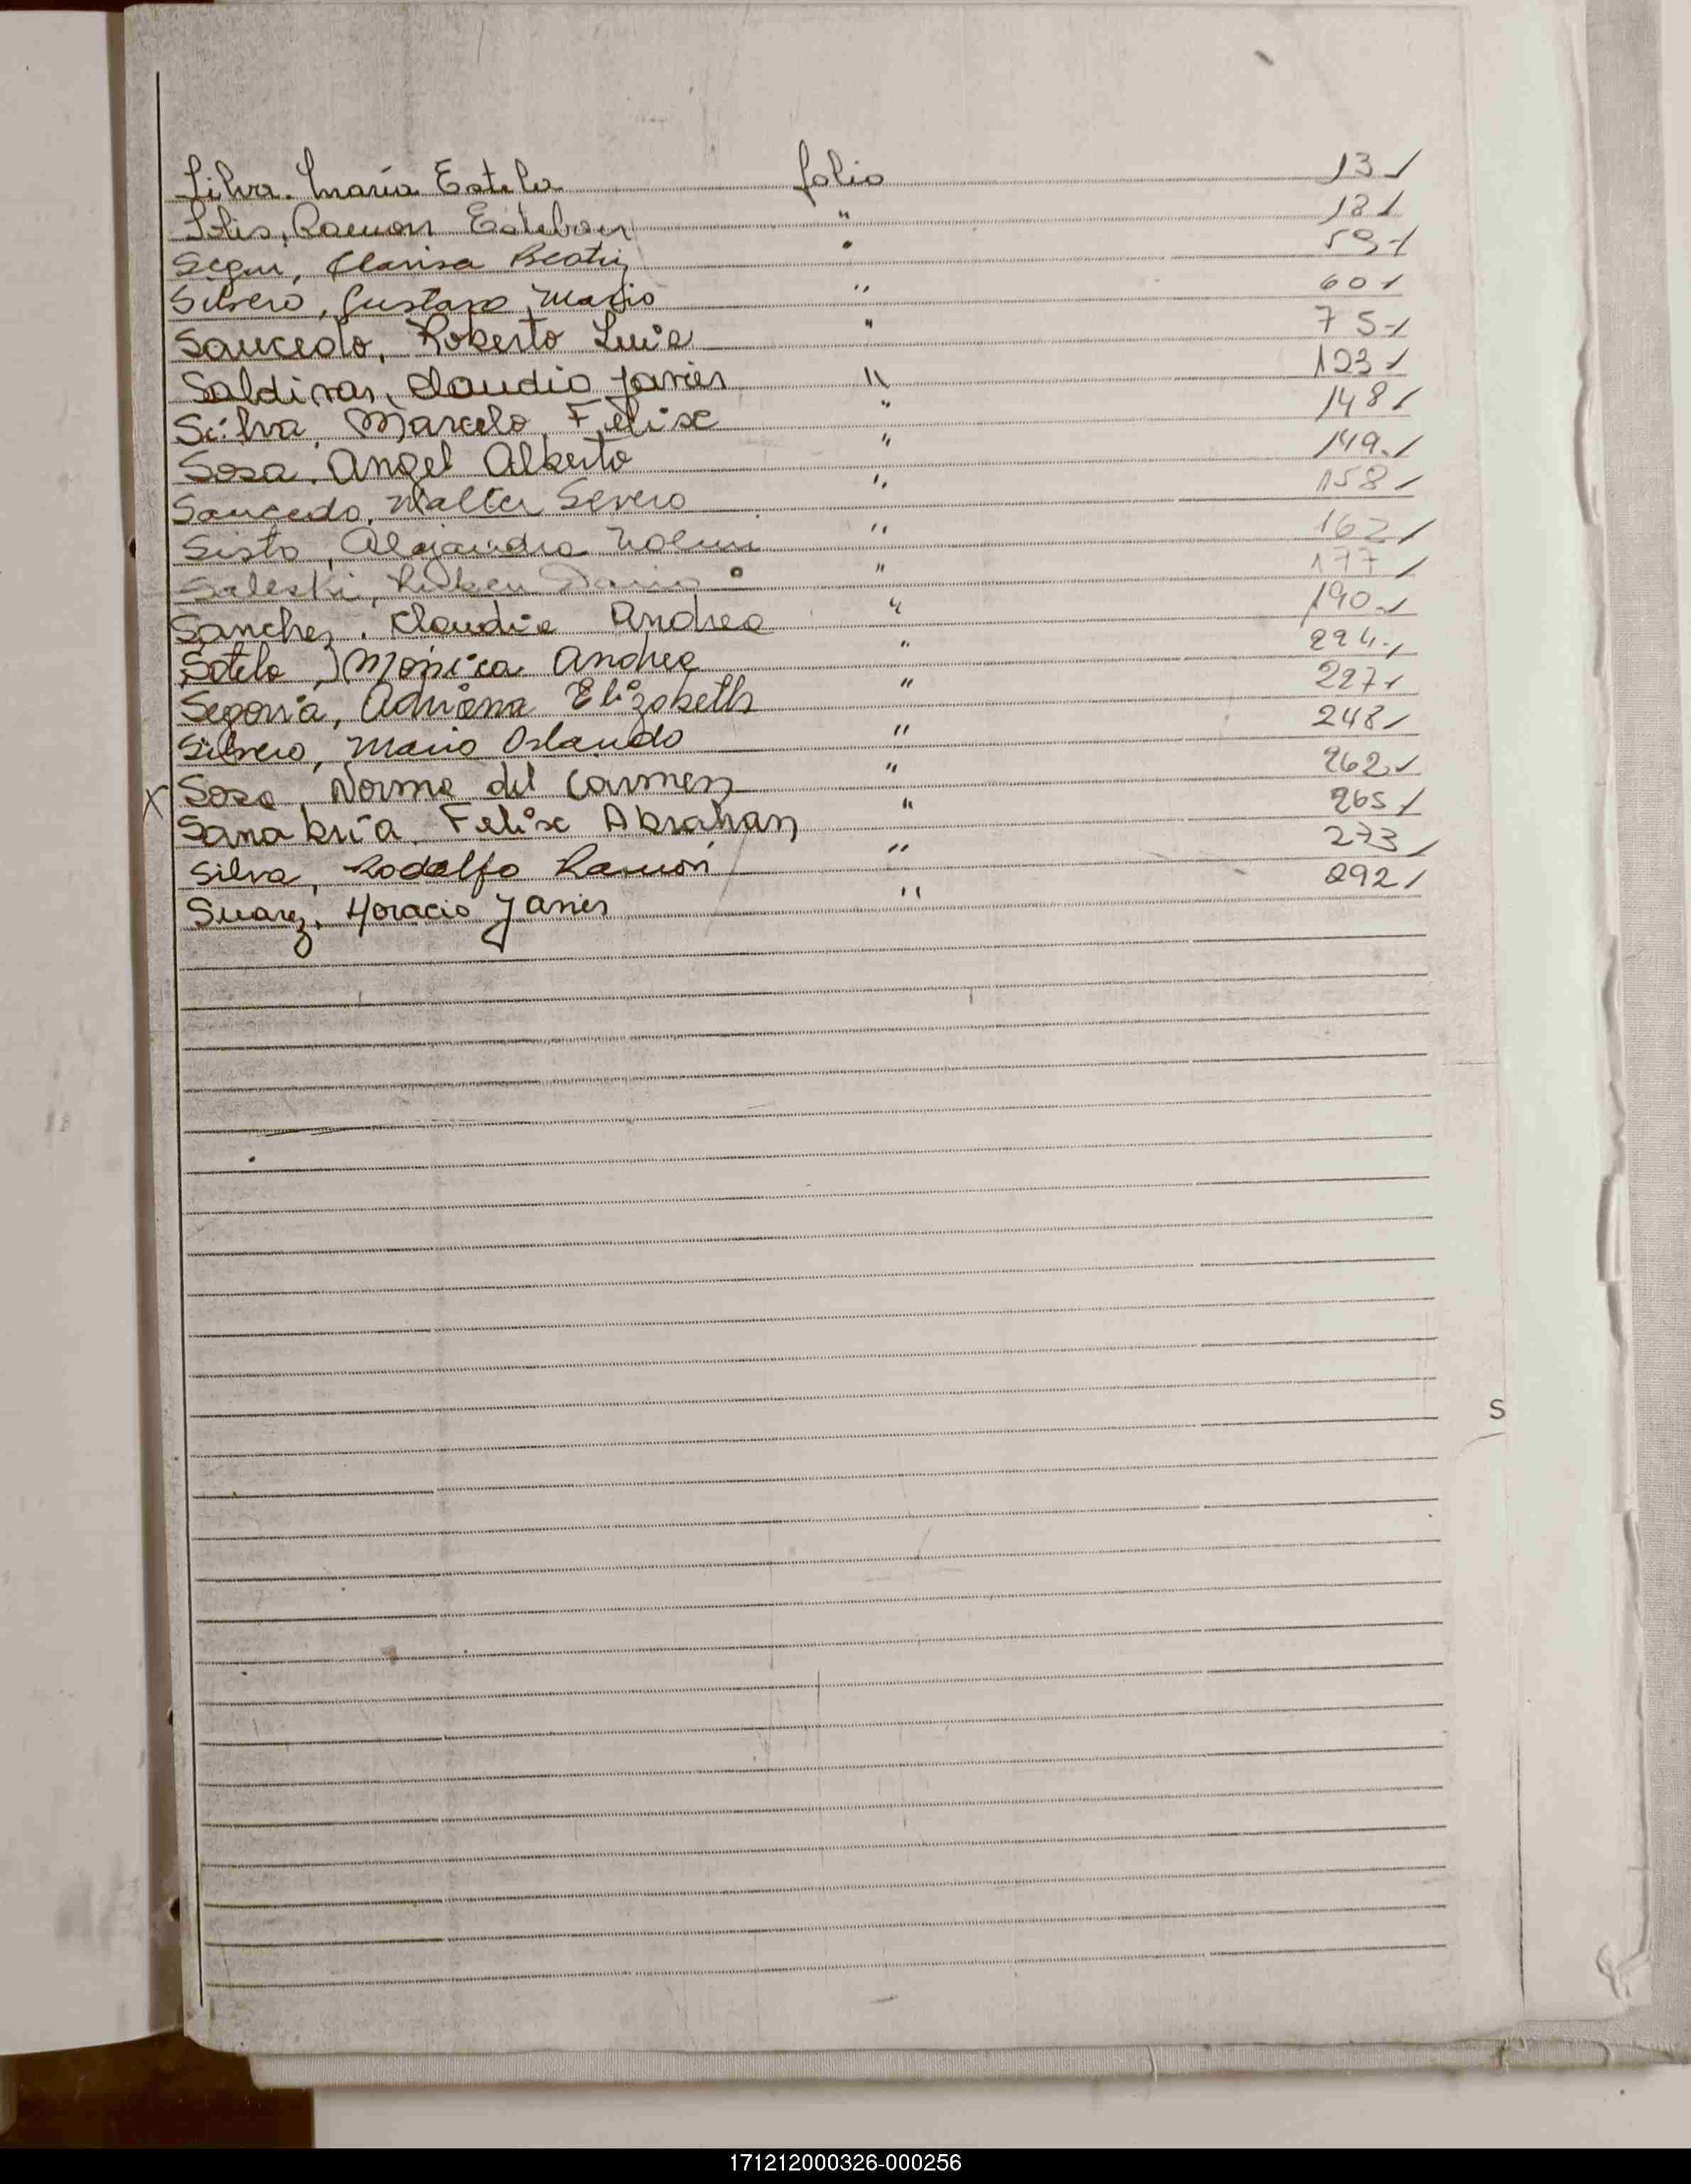 Silva. María Estela folio 13/
Solis, Ramon Esteban " 18/
Segui, Clarisa Beatriz " 59/
Silvero, Gustavo Mario " 60/
Saucedo, Roberto Luis " 75/
Saldivar, Claudio Javier " 123/
Silva, Marcelo Felix " 148/
Sosa, Angel Alberto " 149/
Saucedo, Walter Severo " 158/
Sisto, Alejandra " 162/
Saleski, Ruben Dario " 177/
Sanchez, Claudia Andrea " 190/
Sotelo, Mónica Andrea " 224/
Segovia, Adriana Elizabeth " 227/
Silvero, Mario Orlando " 248/
X Sosa, Norma del Carmen " 262/
Sanabria Felix Abrahan " 265/
Silva, Rodolfo Ramón " 273/
Suarez, Horacio Javier " 292/
S
171212000326-000256